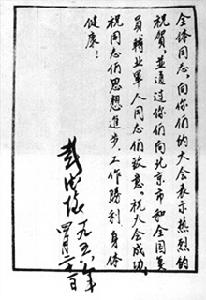 全体同志,向你们的大会表示热烈的
祝賀,並通过你们向北京市和全国复
員轉業軍人同志们致意。祝大会成功,
祝同志们思想進步,工作勝利身体
健康!
彭德怀
一九五六年
四月